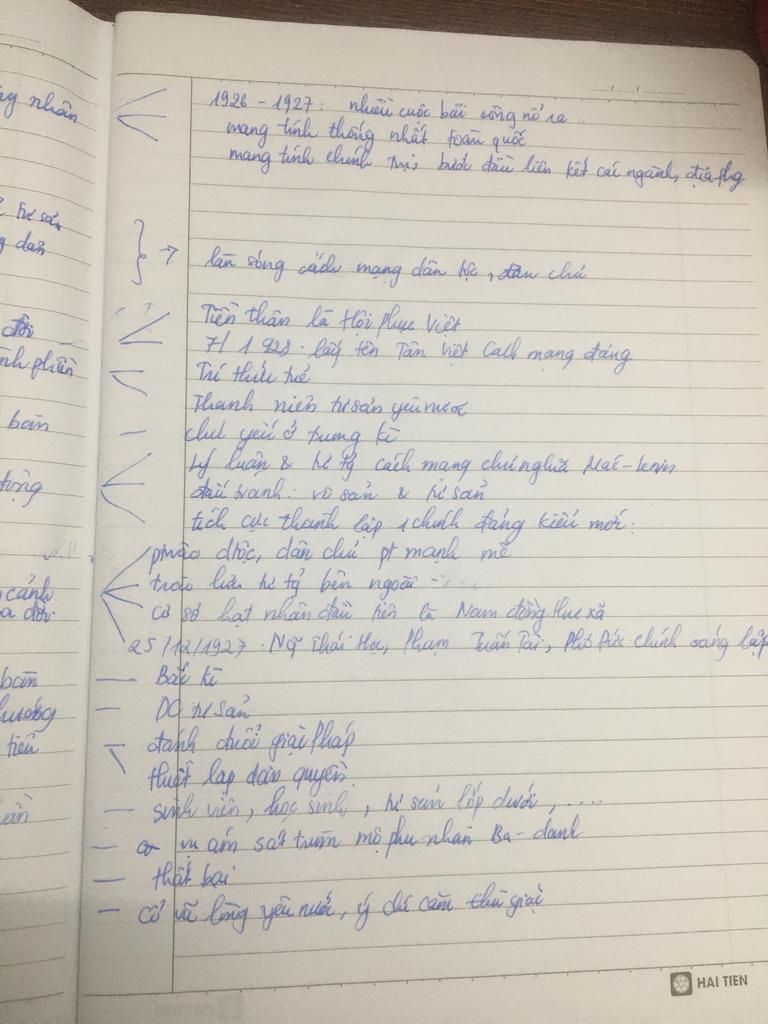 ng nhân
1926 - 1927: nhiều cuộc bãi công nổ ra..
mang tính thống nhất toàn quốc
mang tính chính trị, bước đầu liên kết các ngành, địa phg
tư sản
dân
→ làn sóng cách mạng dân tộc, dân chủ
Tiền thân là Hội Phục Việt
7/1928. lấy tên Tân Việt Cách mạng đảng
đời
Trí thức trẻ
nh phần
Thanh niên tư sản yêu nước
bàn
chủ yếu ở trung kì
lý luận & tư tg cách mạng chủ nghĩa Mác-lenin
động
đấu tranh: vô sản & tư sản
tích cực thành lập 1 chính đảng kiểu mới:
ptrào dtộc, dân chủ pt mạnh mẽ
cảnh
trào lưu tư tg bên ngoài -
a đời
cơ sở hạt nhân đầu tiên là Nam đồng thư xã
25/12/1927: Ng Thái Học, Phạm Tuấn Tài, Phó Đức chính sáng lập
bàn
Bắc kì
hướng
DC tư sản
tiêu
đánh đuổi giặc Pháp
thiết lập dân quyền
sinh viên, học sinh, tư sản lớp dưới, ....
vụ ám sát trùm mộ phu nhân Ba-danh
thất bại
cổ vũ lòng yêu nước, ý chí căm thù giặc
HAI TIEN